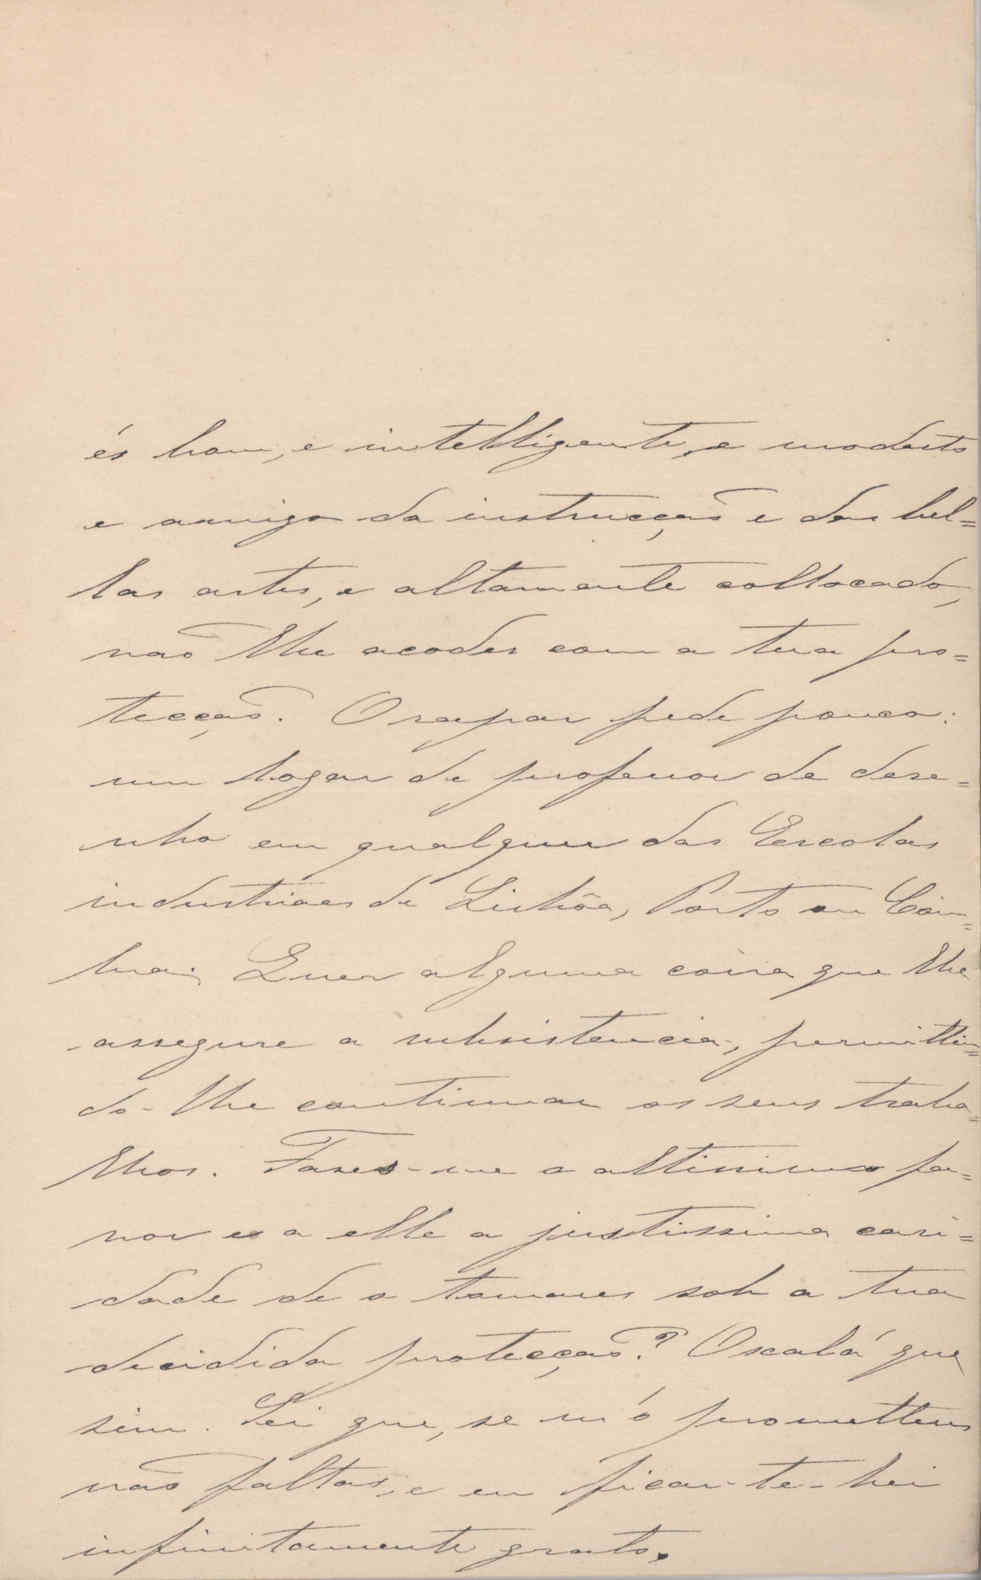 és bom, e intelligente, e modesto
e amigo da instrucção e das bel=
las artes, e altamente collocado,
não lhe acodes com a tua pro=
tecção. O rapaz pede pouco:
um logar de professor de dese=
nho em qualquer das Escolas
industriaes de Lisbôa, Porto ou Coim=
bra. Quer alguma coisa que lhe
assegure a subsistencia, permittin=
do-lhe continuar os seus traba=
lhos. Fazes-me o altissimo fa=
vor e a elle a justissima cari=
dade de o tomares sob a tua
decidida protecção? Oxalá que
sim. Sei que, se m'o prometteres
não faltas, e eu ficar-te-hei
infinitamente grato.